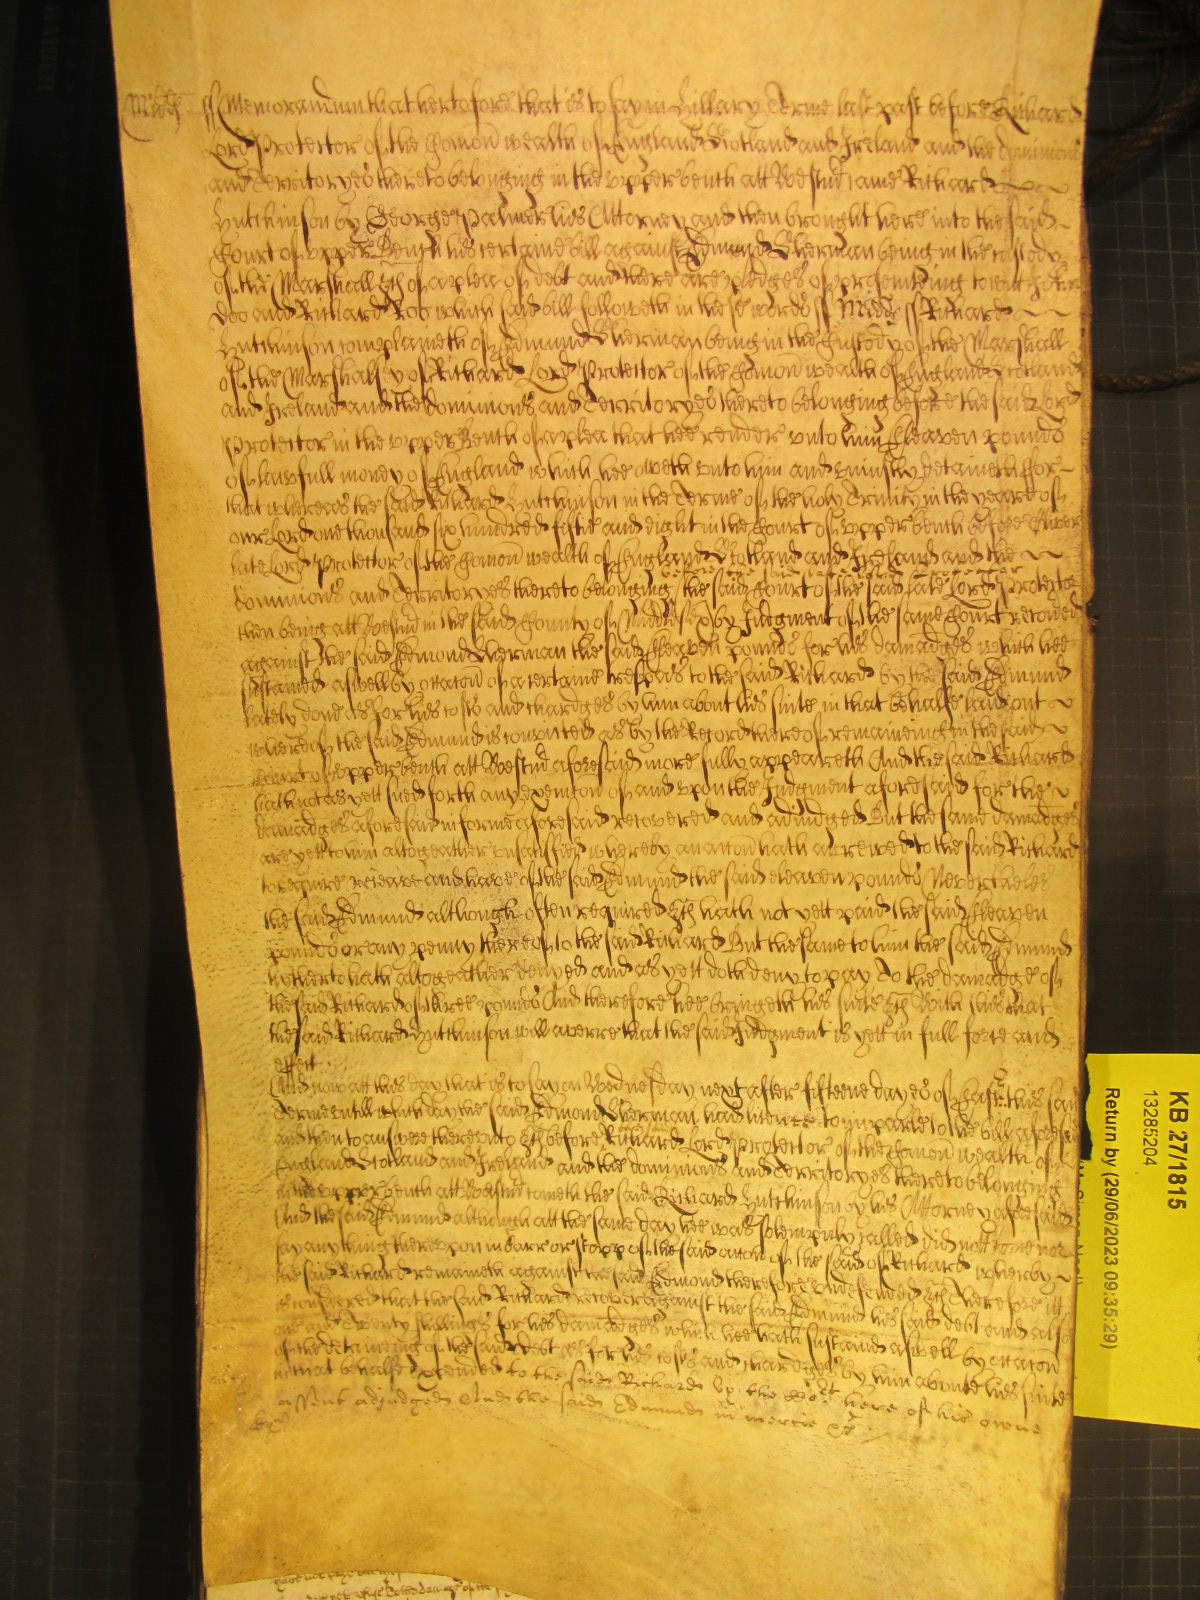 Midd ss Memorandum that heretofore that is to say in Hillary Terme last past before Richard
Lord Protector of the Comon wealth of England Scotland and Ireland and the dominions
and Territoryes thereto belonging in the upper bench att Westmr came Richard
Hutchinson by George Palmer his Attorney and then brought here into the said
Court of upper Bench his certaine bill against Edmund Sherman being in the custody
of the Marshall &c of a plea of debt and there are pledges of prosecuting to wit John
Doo and Richard Roo which said bill followeth in these words ss Midd ss Richard
Hutchinson complaineth of Edmund Sherman being in the Custody of the Marshall
of the Marshalsey of Richard Lord Protector of the Comon wealth of England Scotland
and Ireland and the dominions and Territoryes thereto belonging before the said Lord
Protector in the upper Bench of a plea that hee render unto him Eleaven pounds
of lawfull money of England which hee oweth unto him and uniustly detaineth ffor
that whereas the said Richard Hutchinson in the Terme of the holy Trinity in the yeare of
our Lord one thousand six hundred fiftie and eight in the Court of upper bench before Oliver
late Lord Protector of the Comon wealth of England Scotland and Ireland and the
dominions and Territoryes thereto belonging the said Court of the said late Lord Protector
then being att Westmr in the said County of Midd by Judgment of the same Court recovered
against the said Edmond Sherman the said Eleaven pounds for his damadges which hee
sustained aswell by occacon of a certaine trespas to the said Richard by the said Edmund
lately done as for his costs and chardges by him about his suite in that behalfe laid out
whereof the said Edmund is convicted as by the Record thereof remaineing in the said
Court of upper bench att Westmr aforesaid more fully appeareth And the said Richard
hath not as yett sued forth any execucon of and upon the Judgment aforesaid for the
damadges aforesaid in forme aforesaid recovered and adiudged But the same damadges
are yett to him altogeather unsatisfied whereby an accon hath accrewed to the said Richard
to require and have of the said Edmund the said eleaven pounds Neverthelesse
the said Edmund although often required &c hath not yett paid the said Eleaven
pounds or any penny thereof to the said Richard But the same to him the said Edmund
hitherto hath altogeather denyed and as yett doth deny to pay To the damadge of
the said Richard of three pounds And therefore hee bringeth his suite &c With this that
the said Richard Hutchinson will averre that the said Judgment is yett in full force and
effect
And now att this day that is to say on Wednesday next after fifteene dayes of Easter this same
Terme untill which day the said Edmond Sherman had licence to imparle to the bill aforesaid
and then to answere thereunto &c before Richard Lord Protector of the Comon wealth of
England Scotland and Ireland and the dominions and Territoryes thereto belonging
in the upper bench att Westmr cometh the said Richard Hutchinson by his Attorney aforesaid
And the said Edmund although att the same day hee was solempnly called did not come nor
say any thing thereupon in barr or stopp of the said accon of the said Richard whereby
the said Richard remaineth against the said Edmond therefore undefended &c Therefore itt
is considered that the said Richard recover against the said Edmund his said debt and also
one and Twenty shillings for his damadges which hee hath sustained aswell by occacon
of the detaineing of the said debt as for his costs and chardges by him about his suite
in that behalfe expended to the said Richard by the Court here of his owne
assent adjudged And the said Edmund in mercie &c
KB 27/1815
13285204
Return by (29/06/2023 09:35:29)